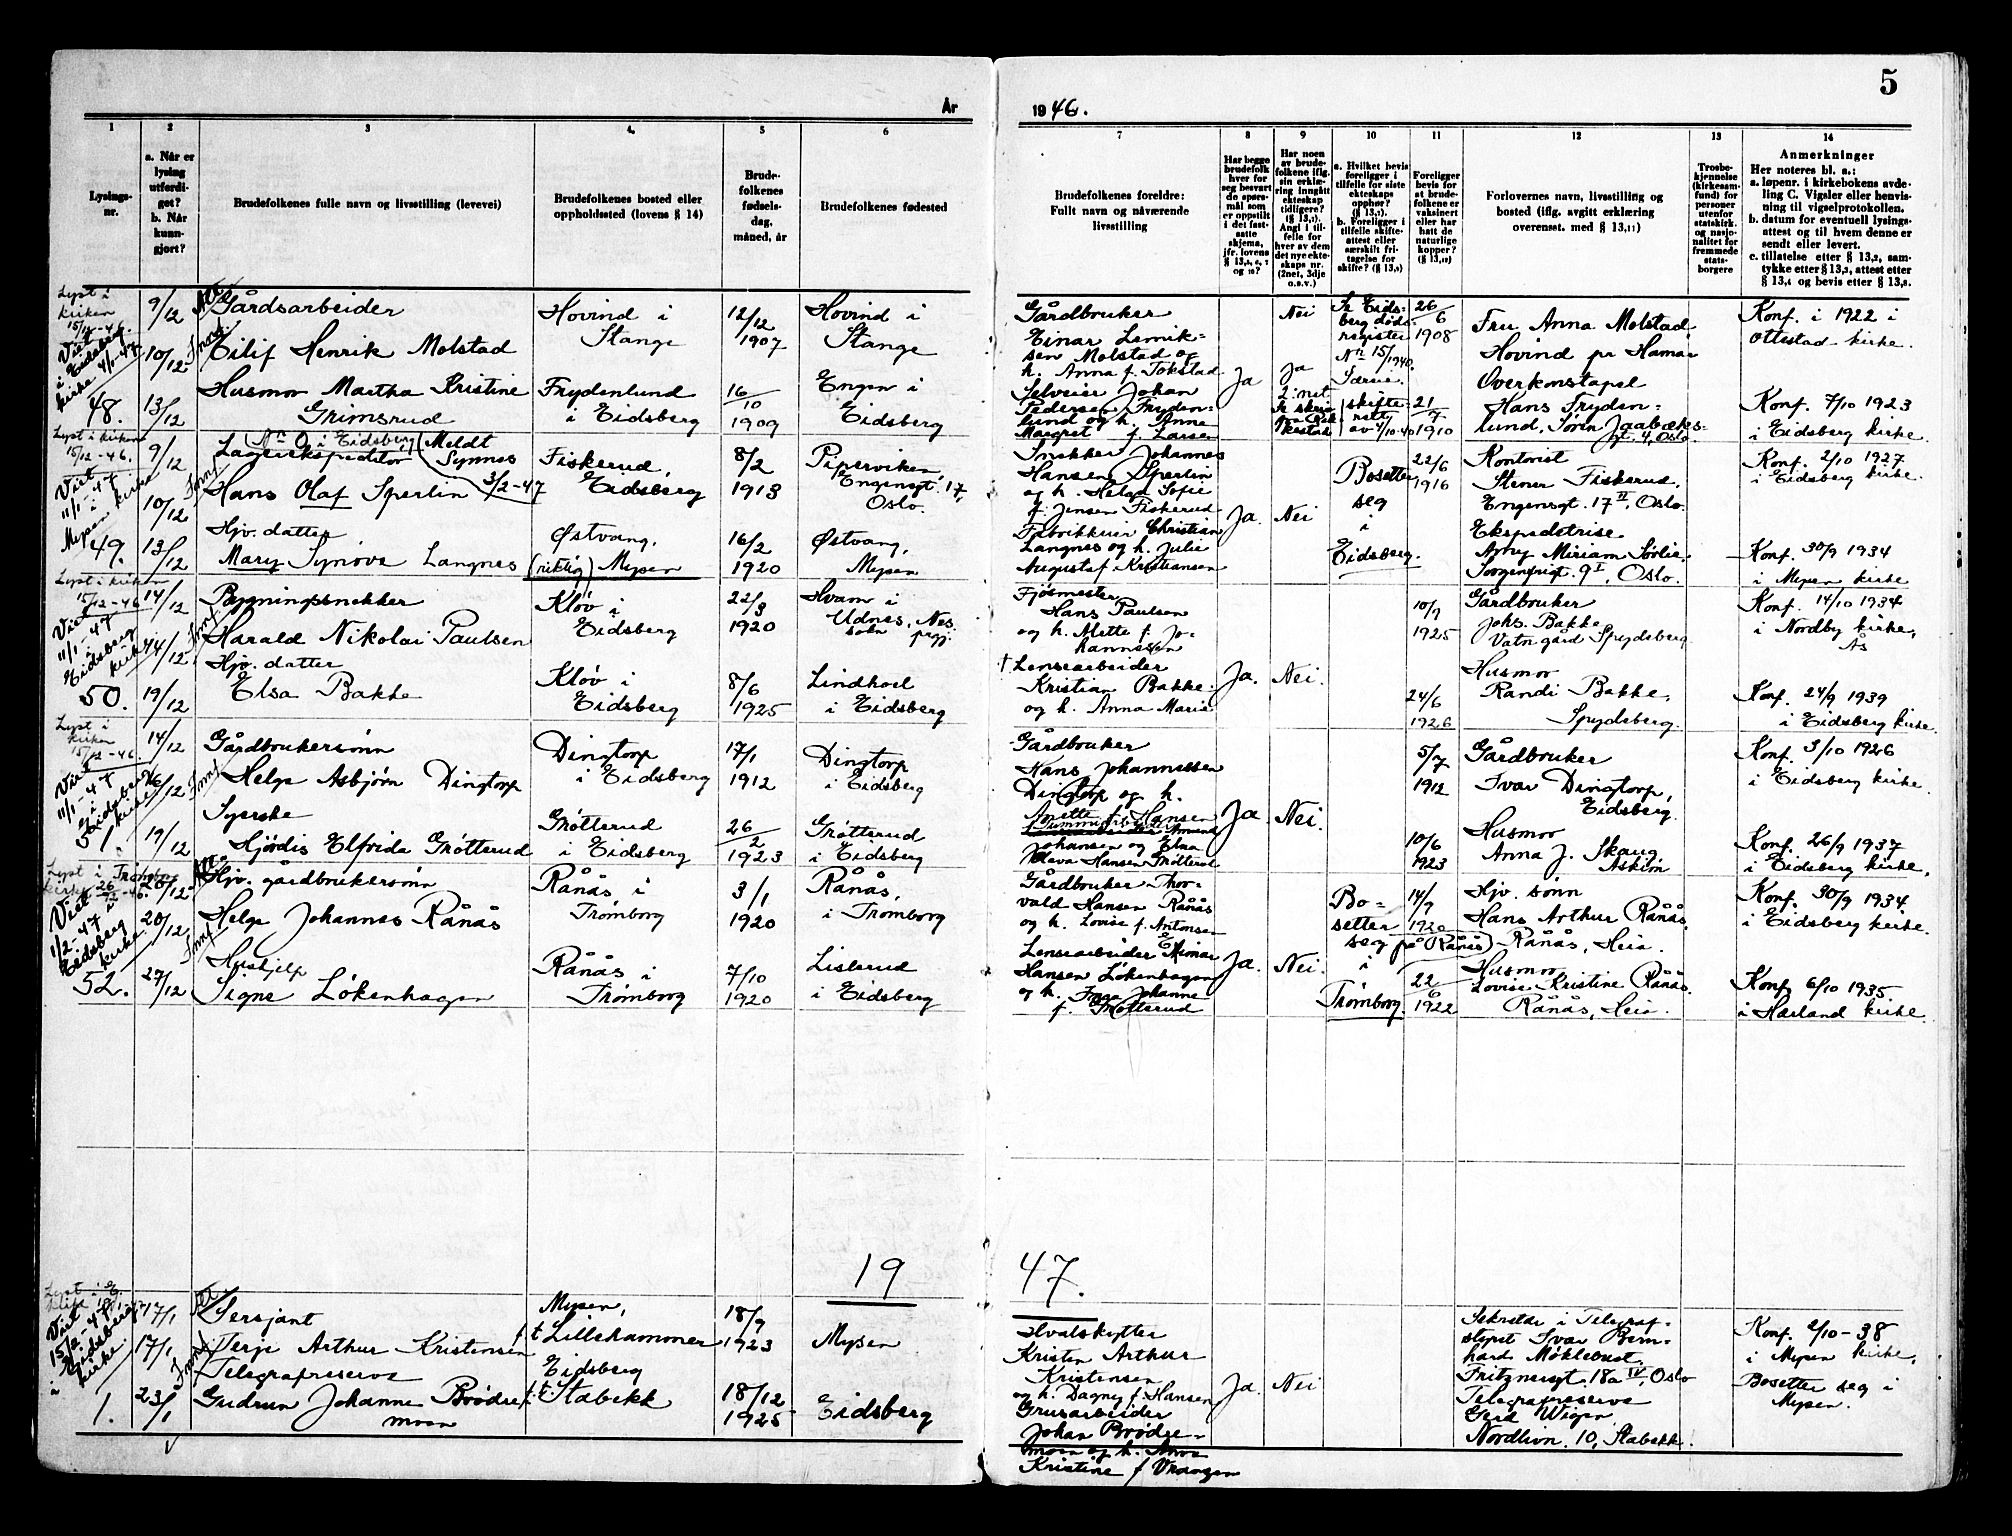 År
1946.
5
1
2
3
4.
5
6
7
8
9
10
11
12
13
14
Lysings-
nr.
a. Når er
lysing
utferdi-
get?
b. Når
kunn-
gjort?
Brudefolkenes fulle navn og livsstilling (levevei)
Brudefolkenes bosted eller
oppholdssted (lovens § 14)
Brude-
folkenes
fødsels-
dag,
måned, år
Brudefolkenes fødested
Brudefolkenes foreldre:
Fullt navn og nåværende
livsstilling
Har begge
brudefolk
hver for
seg besvart
de spørs-
mål som
er oppstilt
i det fast-
satte
skjema,
jfr. lovens
Har noen
av brude-
folkene iflg.
sin erklæ-
ring inngått
ekteskap
tidligere?
Angi i til-
felle for
hver av dem
det nye ekte-
skaps nr.
(2net, 3dje
o.s.v.)
a. Hvilket bevis
foreligger i
tilfelle for siste
ekteskaps
opphør?
b. Foreligger i
tilfelle skifte-
attest eller
særskilt fri-
tagelse for
skifte?
Foreligger
bevis for
at brude-
folkene er
vaksinert
eller har
hatt de
naturlige
kopper?
Forlovernes navn, livsstilling og
bosted (iflg. avgitt erklæring
overensst. med § 13,11)
Trosbe-
kjennelse
(kirkesam-
fund) for
personer
utenfor
statskirk.
og nasjo-
nalitet for
fremmede
stats-
borgere
Anmerkninger
Her noteres bl. a.:
a. løpenr. i kirkebokens avde-
ling C. Vigsler eller henvis-
ning til vigselprotokollen.
b. datum for eventuell lysings-
attest og til hvem denne er
sendt eller levert.
c. tillatelse etter § 13,2, sam-
tykke etter § 13,3, attest etter
§ 13,4 og bevis etter § 13,8.
Lyst i
kirken
15/12-46.
Viet
i Eidsberg
kirke 4/1-47
48.
9/12
10/12
13/12
Gårdsarbeider
Eilif Henrik Molstad
Husmor Martha Kristine
Grimsrud
Hovind i
Stange
Frydenlund
i Eidsberg
12/12
1907
16/10
1909
Hovind i
Stange
Engen i
Eidsberg
Gårdbruker
Einar Lemik-
sen Molstad og
h. Anna f. Tokstad
Selveier Johan
Pedersen Fryden-
lund og h. Anna
Margret f. Larsen
Ja
Nei
Ja
2. net
Eids-
berg døds-
register
Nr 15/1940.
skifte-
rett
av 4/10-40
26/6
1908
21/7
1910
Fru Anna Molstad
Hovind pr Hamar
Overkonstapel
Hans Fryden-
lund, Søren Jaabæks-
gt. 4, Oslo
Konf. i 1922 i
Ottestad kirke.
Konf. 7/10 1923
i Eidsberg kirke.
Lyst i kirken
15/12-46.
Viet
11/1-47
i
Mysen kirke
49.
9/12
10/12
13/12
Nr 0 i Eidsberg
Meldt
Synnes
3/2-47
Lagerekspeditør
Hans Olaf Sperlin
Hjv. datter
Mary Synøve Langnes
Fiskerud,
Eidsberg
Østvang,
(riktig) Mysen
8/2
1913
16/2
1920
Piperviken
Engensgt. 17,
Oslo.
Østvang,
Mysen
Snekker Johannes
Hansen Sperlin
og h. Helga Sofie
f. Jensen Fiskerud
Fabrikkeier Christian
Langnes og h. Julie
Augusta f. Kristiansen
Ja.
Nei
Bosetter
seg
i
Eidsberg.
22/6
1916
Kontorist
Stener Fiskerud.
Engensgt. 17 II, Oslo.
Ekspeditrise
Amy Miriam Sørlie.
Sorgenfrigt. 9 I, Oslo.
Konf. 2/10 1927
i Eidsberg kirke.
Konf. 30/9 1934
i Mysen kirke
Lyst i kirken
15/12-46
Viet
11/1-47
i
Eidsberg
kirke
50.
14/12
14/12
19/12
Bygningssnekker
Harald Nikolai Paulsen
Hjv. datter
Elsa Bakke
Kløv i
Eidsberg
Kløv i
Eidsberg
22/3
1920
8/6
1925
Hvam i
Udnes, Nes
sokn prgj.
Lindhoel
i Eidsberg
Fjøsmester
Hans Paulsen
og h. Mette f. Jo-
hannessen
† Lensearbeider
Kristian Bakke.
og h. Anna Marie
Ja.
Nei.
10/7
1925
24/6
1926
Gårdbruker
Johs. Bakke
Vatn gård Spydsberg
Husmor
Randi Bakke.
Spydsberg.
Konf. 14/10 1934
i Nordby kirke,
Ås
Konf. 24/9 1939
i Eidsberg kirke.
Lyst i
kirken
15/12-46.
Viet
11/1-47
i
Eidsberg
kirke
51.
14/12
16/12
19/12
Gårdbrukersønn
Helge Asbjørn Dingtorp
Syerske
Hjørdis Elfrida Grøtterud
Dingtorp
i Eidsberg
Grøtterud
i Eidsberg
17/1
1912
26/2
1923
Dingtorp
i Eidsberg
Grøtterud
i Eidsberg
Gårdbruker
Hans Johannessen
Dingtorp og h.
Anette f. Hansen
Johansen og Elna
Olava Hansen Grøtterud
Ja
Nei.
5/7
1912
10/6
1923
Gårdbruker
Ivar Dingtorp,
Eidsberg.
Husmor
Anna J. Skaug
Askim
Konf. 3/10 1926
i Eidsberg kirke.
Konf. 26/9 1937
i Eidsberg kirke.
Lyst i Trømborg
kirke 26/12-46.
Viet
1/2-47 i
Eidsberg
kirke
52.
20/12
20/12
27/12
Hjv. gårdbrukersønn
Helge Johannes Rånås
Hushjelp
Signe Løkenhagen
Rånås i
Trømborg
Rånås i
Trømborg
3/1
1920
7/10
1920
Rånås,
i Trømborg
Lislerud
i Eidsberg
Gårdbruker Thor-
vald Hansen Rånås
og h. Lovise f. Antonsen
Lensearbeider Einar
Hansen Løkenhagen
og h. Inga Johanne
f. Grøtterud
Ja.
Nei.
Bo-
setter
seg på Rånås
i
Trømborg.
14/9
1920
22/6
1922
Hjv. sønn
Hans Arthur Rånås,
Rånås, Heia.
Husmor
Lovise Kristine Rånås.
Rånås, Heia.
Konf. 30/9 1934
i Eidsberg kirke.
Konf 6/10 1935
i Hærland kirke.
19
47.
Viet
15/2-47
i Eidsberg
kirke
1.
17/1
17/1
23/1
Sersjant
Terje Arthur Kristensen
Telegrafreserve
Gudrun Johanne Brødre-
moen
Mysen,
f.t. Lillehammer
Eidsberg
f.t. Stabekk
18/9
1923
18/12
1925
Mysen
Eidsberg
Hvalskytter
Kristen Arthur
Kristensen
og h. Dagny f. Hansen
Grusarbeider
Johan Brødre-
moen og h. Anna
Kristine f. Vrangen
Ja.
Nei
Sekretær i Telegraf-
styret Ivar Bern-
hard Møklebust.
Fritznersgt. 18a IV, Oslo
Telegrafreserve
Gerd Wigen
Nordlivn. 10, Stabekk.
Konf. 2/10-38
i Mysen kirke.
Bosetter seg i
Mysen.